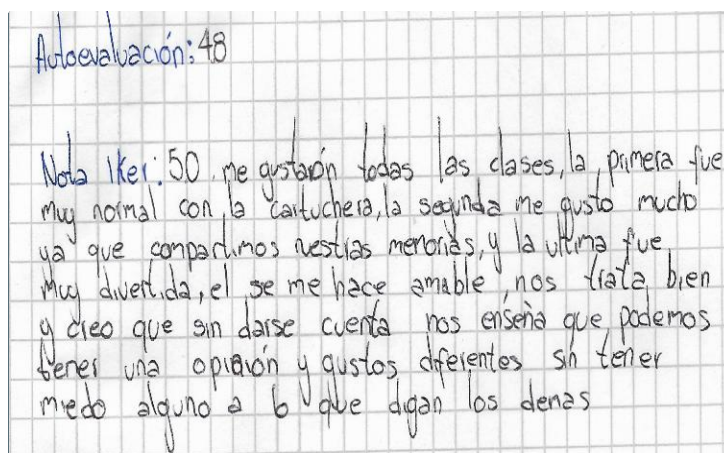 Autoevaluación: 48
Nota Iker: 50, me gustarón todas las clases, la primera fue
muy normal con la cartuchera, la segunda me gusto mucho
ya que compartimos nestras menorias, y la ultima fue
muy divertida, el se me hace amable, nos trata bien
y creo que sin darse cuenta nos enseña que podemos
tener una opinión y gustos diferentes sin tener
miedo alguno a lo que digan los demas